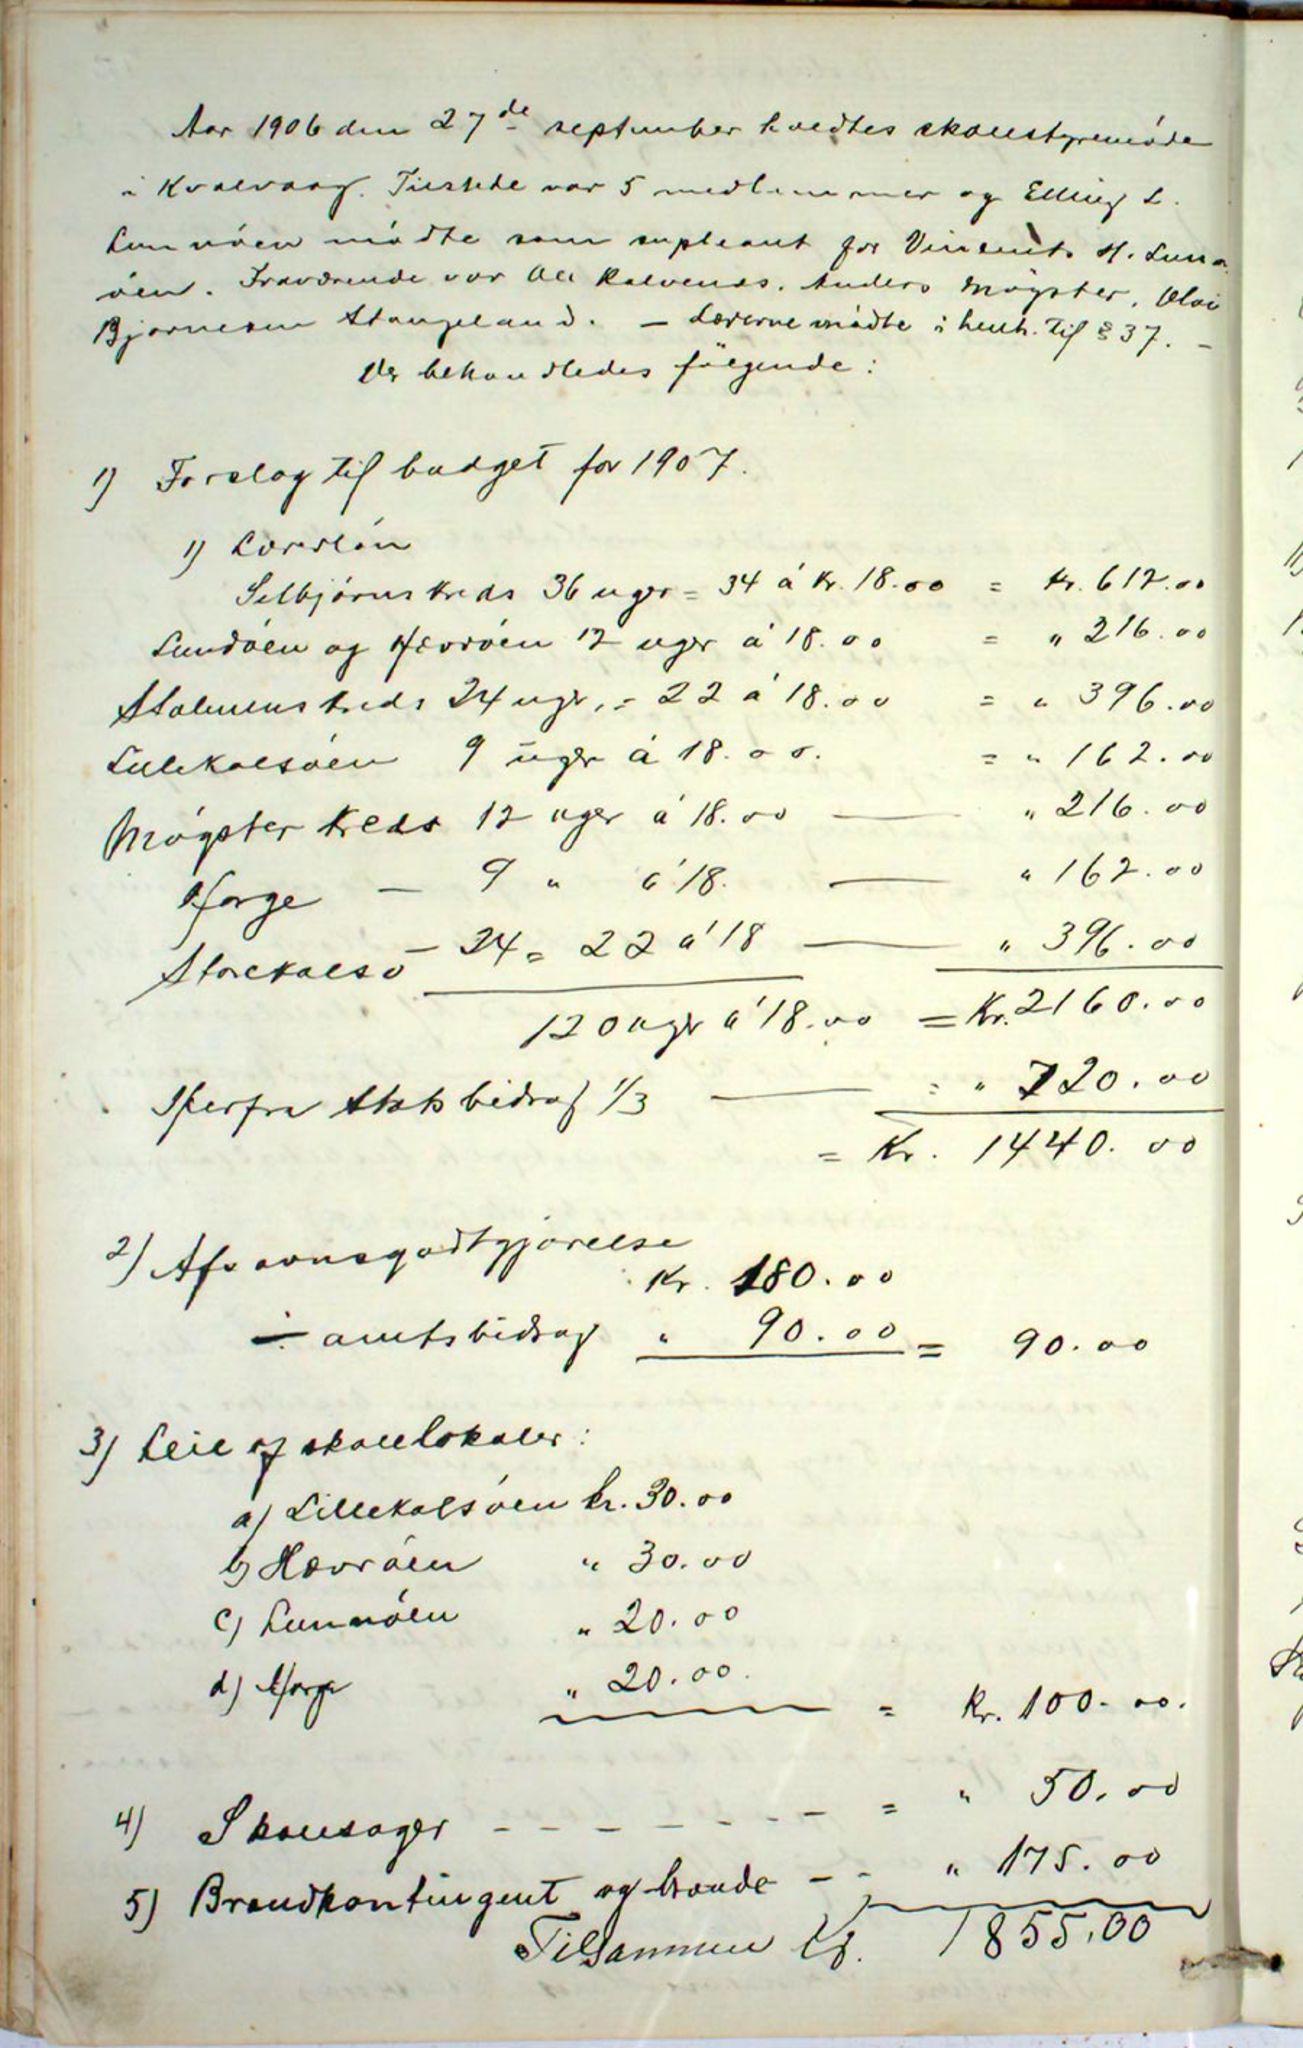 Aar 1906 den 27de september holdtes skolestyremöde
i Kvalvaag. Tilstede var 5 medlemmer og Elling L.
Lunnöen mödte som supleant for Vincents H. Lunn-
öen. Fraværende var Ole Kalvenes, Anders Mögster, Olai
Bjarnesen Stangeland. – Lærerne mödte i henh. til § 37. –
Der behandledes fölgende:
1) Forslag til budget for 1907.
1) Lærerlön
Selbjörns kreds 36 uger = 34 á kr. 18.00 = kr. 612.00
Lunöen og Hevröen 12 uger á 18.00 = " 216.00
Stolmens kreds 24 uger, = 22 á 18.00 = " 396.00
Lillekalsöen 9 uger á 18.00. = " 162.00
Mögster kreds 12 uger á 18.00 — " 216.00
Horge — 9 " á 18. — " 162.00
Storekalsö — 24 = 22 á 18 — " 396.00
120 uger á 18.00 = Kr. 2160.00
Herfra Statsbidrag 1/3 — = " 720.00
= Kr. 1440.00
2) Afsavnsgodtgjörelse
Kr. 180.00
÷ amtsbidrag " 90.00 = 90.00
3) Leie af skolelokaler:
a) Lillekalsöen kr. 30.00
b) Hævröen " 30.00
c) Lunnöen " 20.00
d) Horge " 20.00.
= Kr. 100.00.
4) Skolesager - - - - - - - = " 50.00
5) Brandkontingent og brænde - - " 175.00
Tilsammen Kr. 1855.00